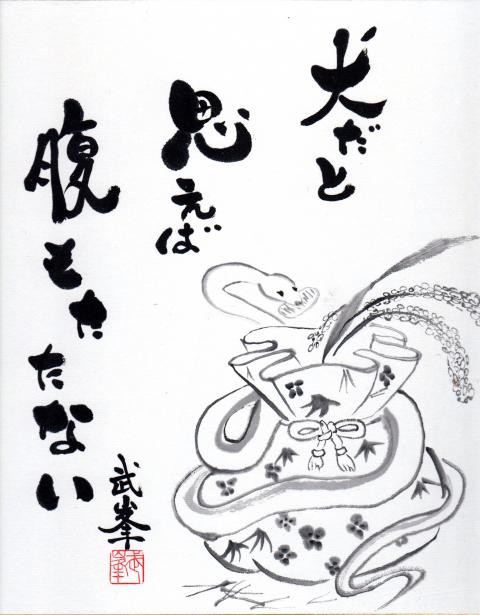 犬だと
思えば
腹もたたない
武峯